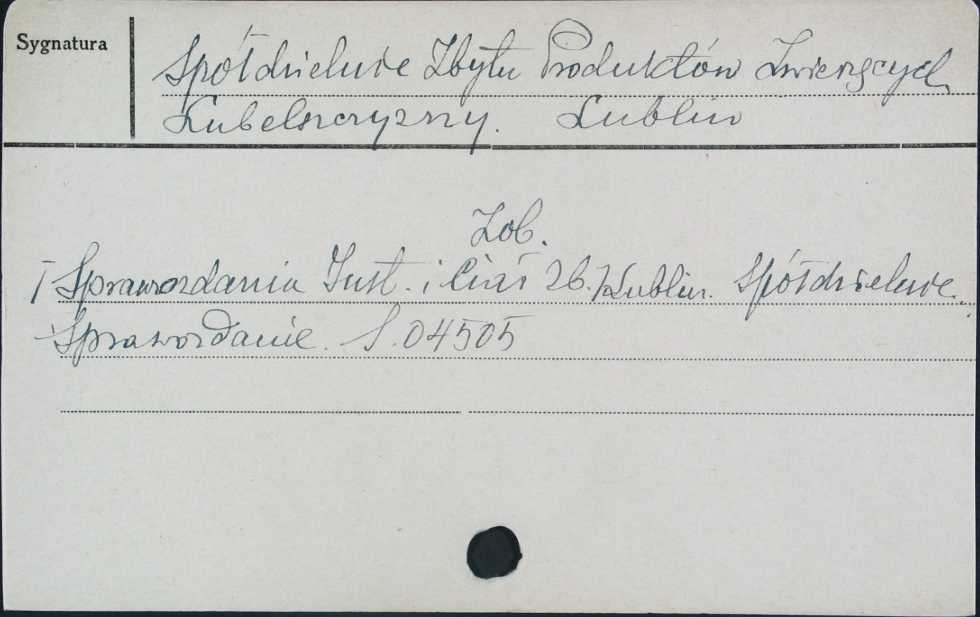 Sygnatura
Spółdzielnie Zbytu Produktów Zwierzęcych
Lubelszczyzny. Lublin
Zob.
Sprawozdania Inst. i Ciał zb. Lublin. Spółdzielnie.
Sprawozdanie. S. 04505